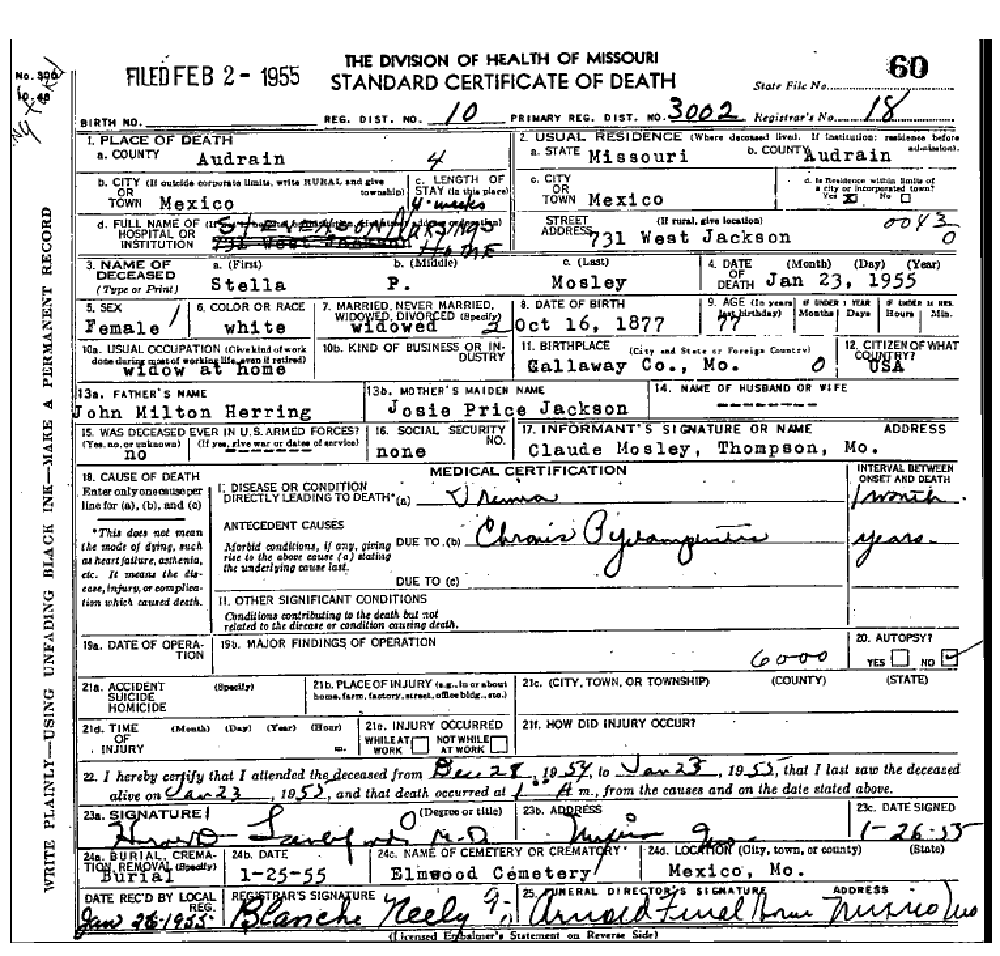 THE DIVISION OF HEALTH OF MISSOURI
FILED FEB 2 - 1955 STANDARD CERTIFICATE OF DEATH State File No. 60
BIRTH NO. REG. DIST. NO. 10 PRIMARY REG. DIST. NO. 3002 Registrar's No. 18
WRITE PLAINLY—USING UNFADING BLACK INK—MAKE A PERMANENT RECORD
1. PLACE OF DEATH
a. COUNTY Audrain 4
2. USUAL RESIDENCE (Where deceased lived. If institution: residence before admission).
a. STATE Missouri b. COUNTY Audrain
b. CITY (If outside corporate limits, write RURAL and give township)
OR TOWN Mexico
c. LENGTH OF STAY (In this place)
4 weeks
c. CITY OR TOWN Mexico
d. Is Residence within limits of a city or incorporated town?
Yes X No
d. FULL NAME OF HOSPITAL OR INSTITUTION Stevenson Nursing Home
731 West Jackson
STREET ADDRESS (If rural, give location) 0043
731 West Jackson 0
3. NAME OF DECEASED (Type or Print)
a. (First) b. (Middle) c. (Last)
Stella P. Mosley
4. DATE OF DEATH (Month) (Day) (Year)
Jan 23, 1955
5. SEX
Female 1
6. COLOR OR RACE
white
7. MARRIED, NEVER MARRIED, WIDOWED, DIVORCED (Specify)
widowed
8. DATE OF BIRTH
Oct 16, 1877
9. AGE (In years last birthday) IF UNDER 1 YEAR Months Days IF UNDER 24 HRS. Hours Min.
77
10a. USUAL OCCUPATION (Give kind of work done during most of working life, even if retired)
widow at home
10b. KIND OF BUSINESS OR INDUSTRY
11. BIRTHPLACE (City and State or Foreign Country)
Callaway Co., Mo. 0
12. CITIZEN OF WHAT COUNTRY?
USA
13a. FATHER'S NAME
John Milton Herring
13b. MOTHER'S MAIDEN NAME
Josie Price Jackson
14. NAME OF HUSBAND OR WIFE
-------
15. WAS DECEASED EVER IN U.S. ARMED FORCES?
(Yes, no, or unknown) (If yes, give war or dates of service)
no -------
16. SOCIAL SECURITY NO.
none
17. INFORMANT'S SIGNATURE OR NAME ADDRESS
Claude Mosley, Thompson, Mo.
18. CAUSE OF DEATH
Enter only one cause per line for (a), (b), and (c)
*This does not mean the mode of dying, such as heart failure, asthenia, etc. It means the disease, injury, or complication which caused death.
MEDICAL CERTIFICATION
INTERVAL BETWEEN ONSET AND DEATH
I. DISEASE OR CONDITION DIRECTLY LEADING TO DEATH* (a) Uremia 1 month
ANTECEDENT CAUSES
Morbid conditions, if any, giving rise to the above cause (a) stating the underlying cause last.
DUE TO (b) Chronic years.
DUE TO (c)
II. OTHER SIGNIFICANT CONDITIONS
Conditions contributing to the death but not related to the disease or condition causing death.
19a. DATE OF OPERATION
19b. MAJOR FINDINGS OF OPERATION
6000
20. AUTOPSY?
YES NO
21a. ACCIDENT SUICIDE HOMICIDE (Specify)
21b. PLACE OF INJURY (e.g., in or about home, farm, factory, street, office bldg., etc.)
21c. (CITY, TOWN, OR TOWNSHIP) (COUNTY) (STATE)
21d. TIME OF INJURY (Month) (Day) (Year) (Hour) m.
21e. INJURY OCCURRED
WHILE AT WORK NOT WHILE AT WORK
21f. HOW DID INJURY OCCUR?
22. I hereby certify that I attended the deceased from Dec 28, 1954, to Jan 23, 1955, that I last saw the deceased
alive on Jan 23, 1955, and that death occurred at A m., from the causes and on the date stated above.
23a. SIGNATURE (Degree or title)
M.D.
23b. ADDRESS
Mexico Mo
23c. DATE SIGNED
1-26-55
24a. BURIAL, CREMATION, REMOVAL (Specify)
Burial
24b. DATE
1-25-55
24c. NAME OF CEMETERY OR CREMATORY
Elmwood Cemetery
24d. LOCATION (City, town, or county) (State)
Mexico, Mo.
DATE REC'D BY LOCAL REG.
Jan 26-1955
REGISTRAR'S SIGNATURE
Blanche Neely
25. FUNERAL DIRECTOR'S SIGNATURE ADDRESS
Arnold Funeral Home Mexico Mo
(Licensed Embalmer's Statement on Reverse Side)